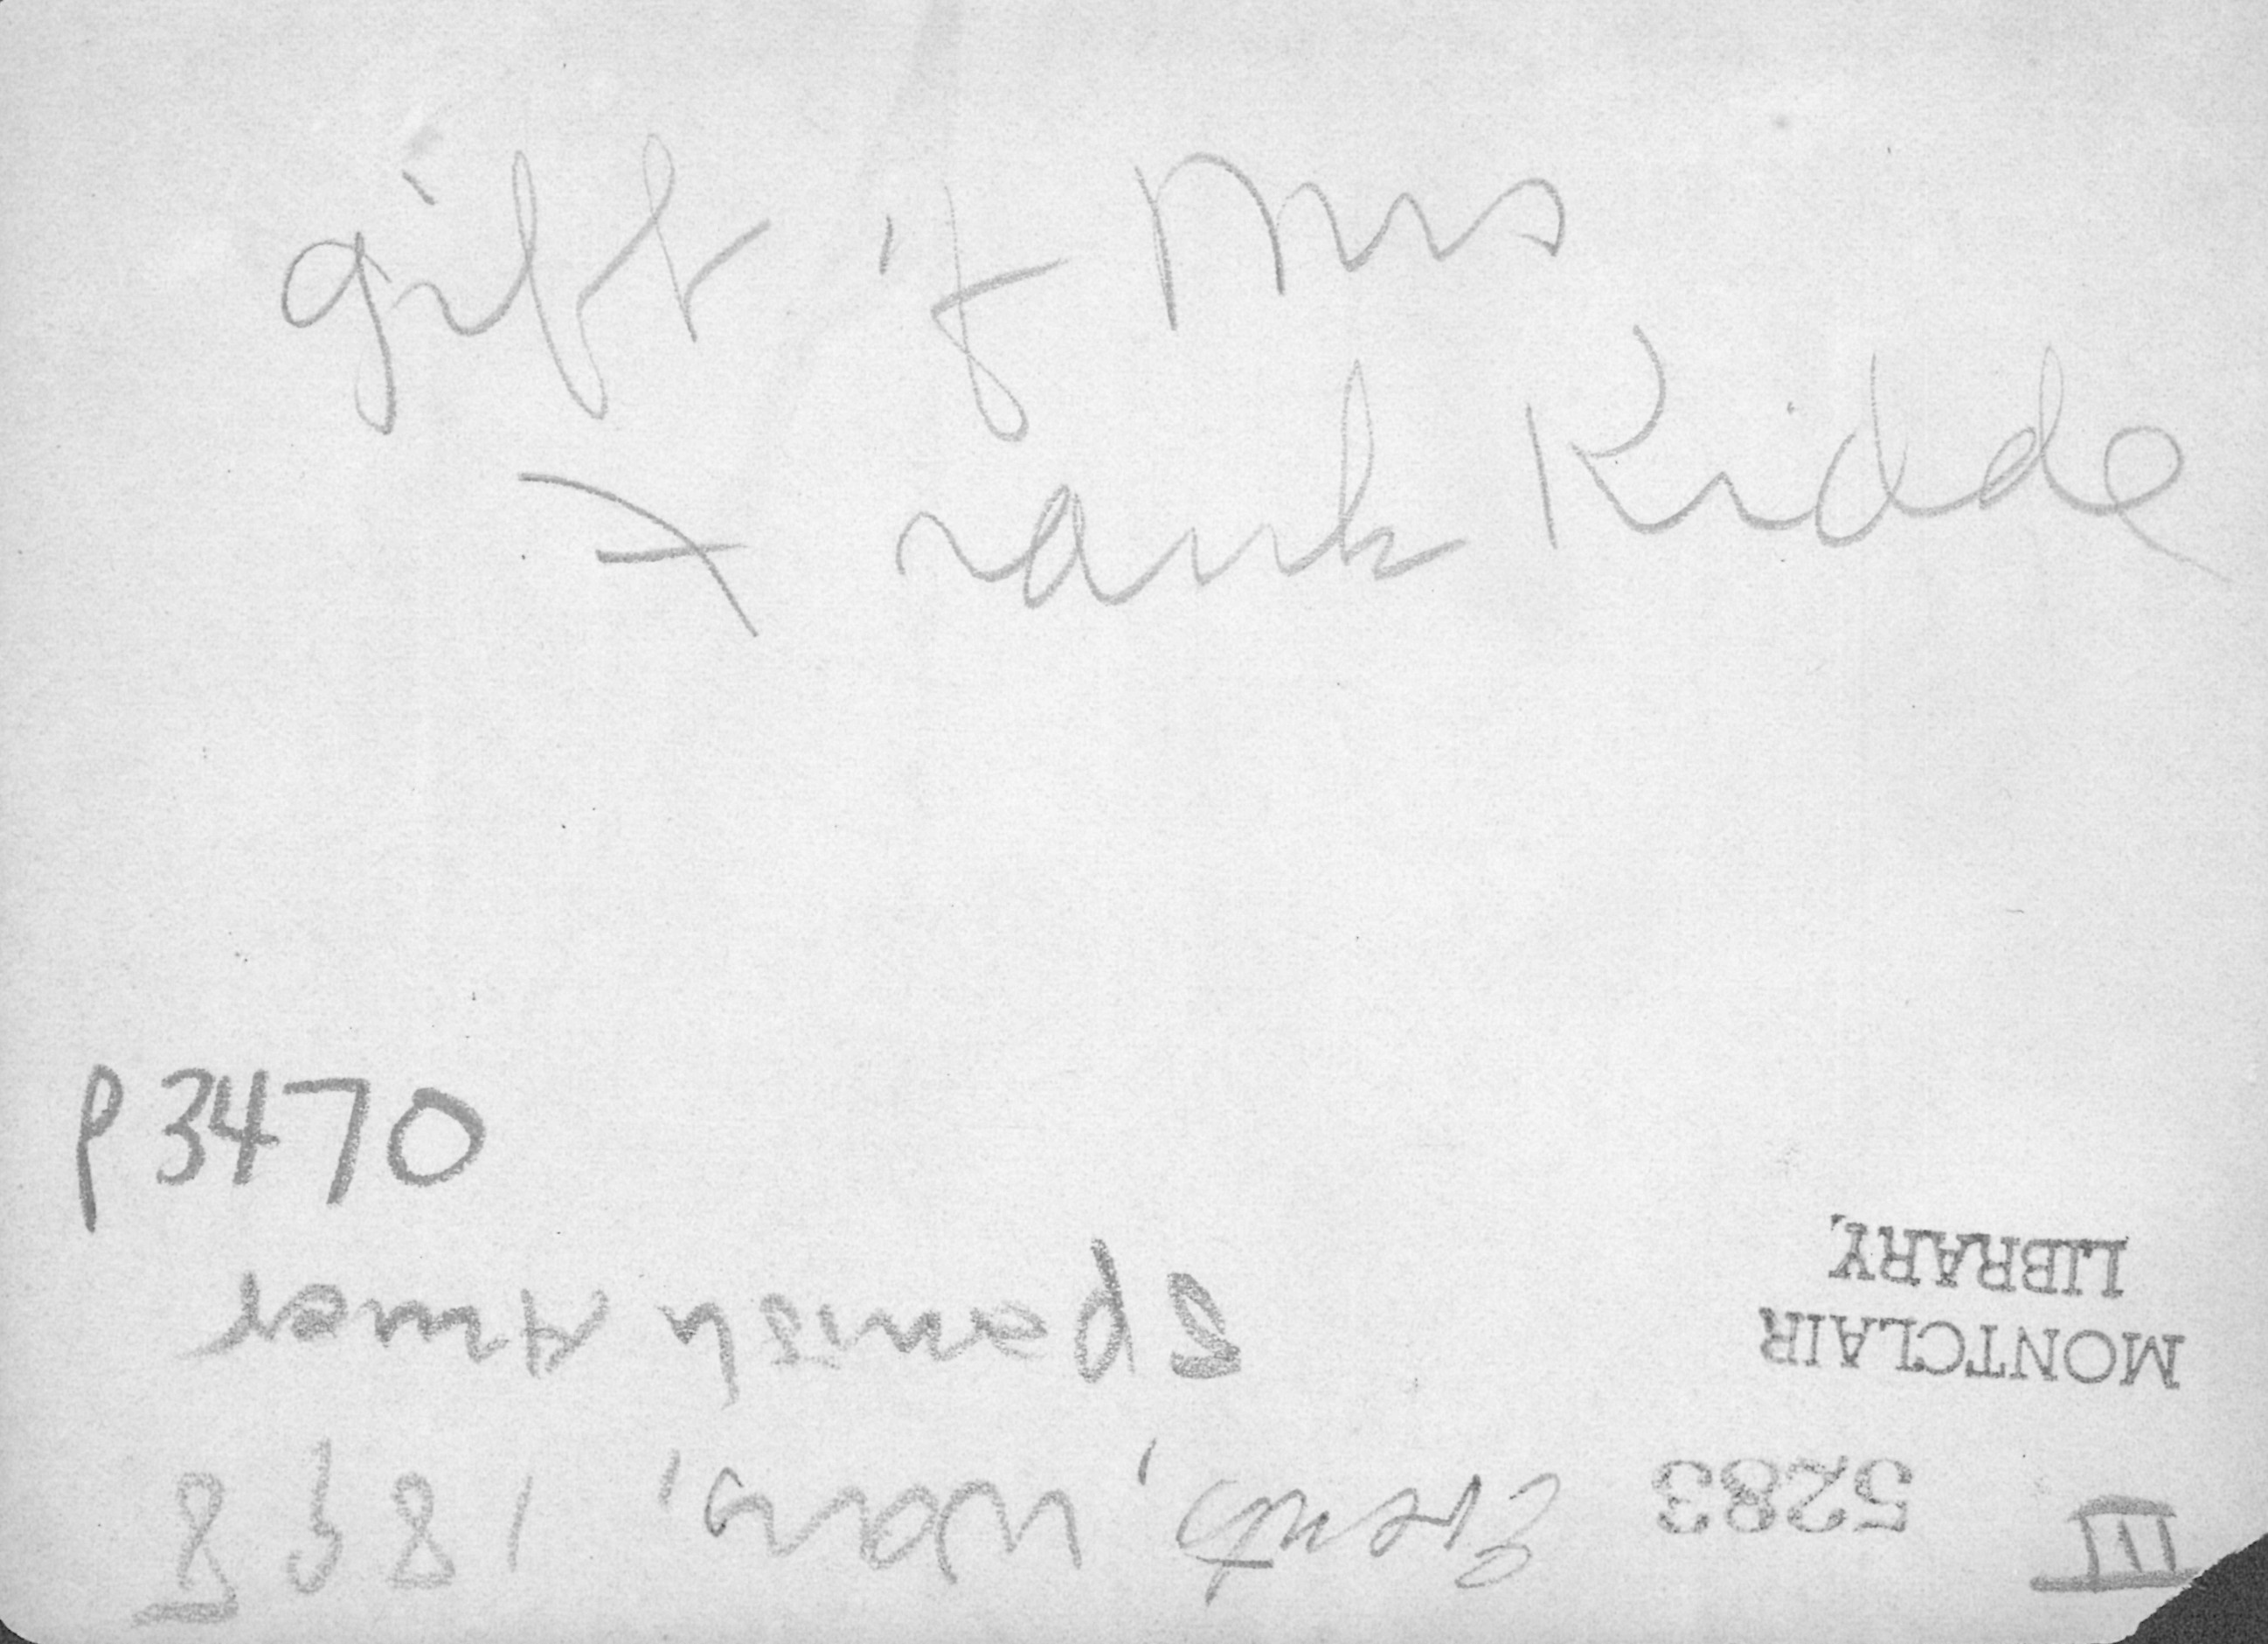 gift of Mrs
Frank Kidde
P3470
III
5283
MONTCLAIR
LIBRARY
Events, wars, 1898
Spanish Amer